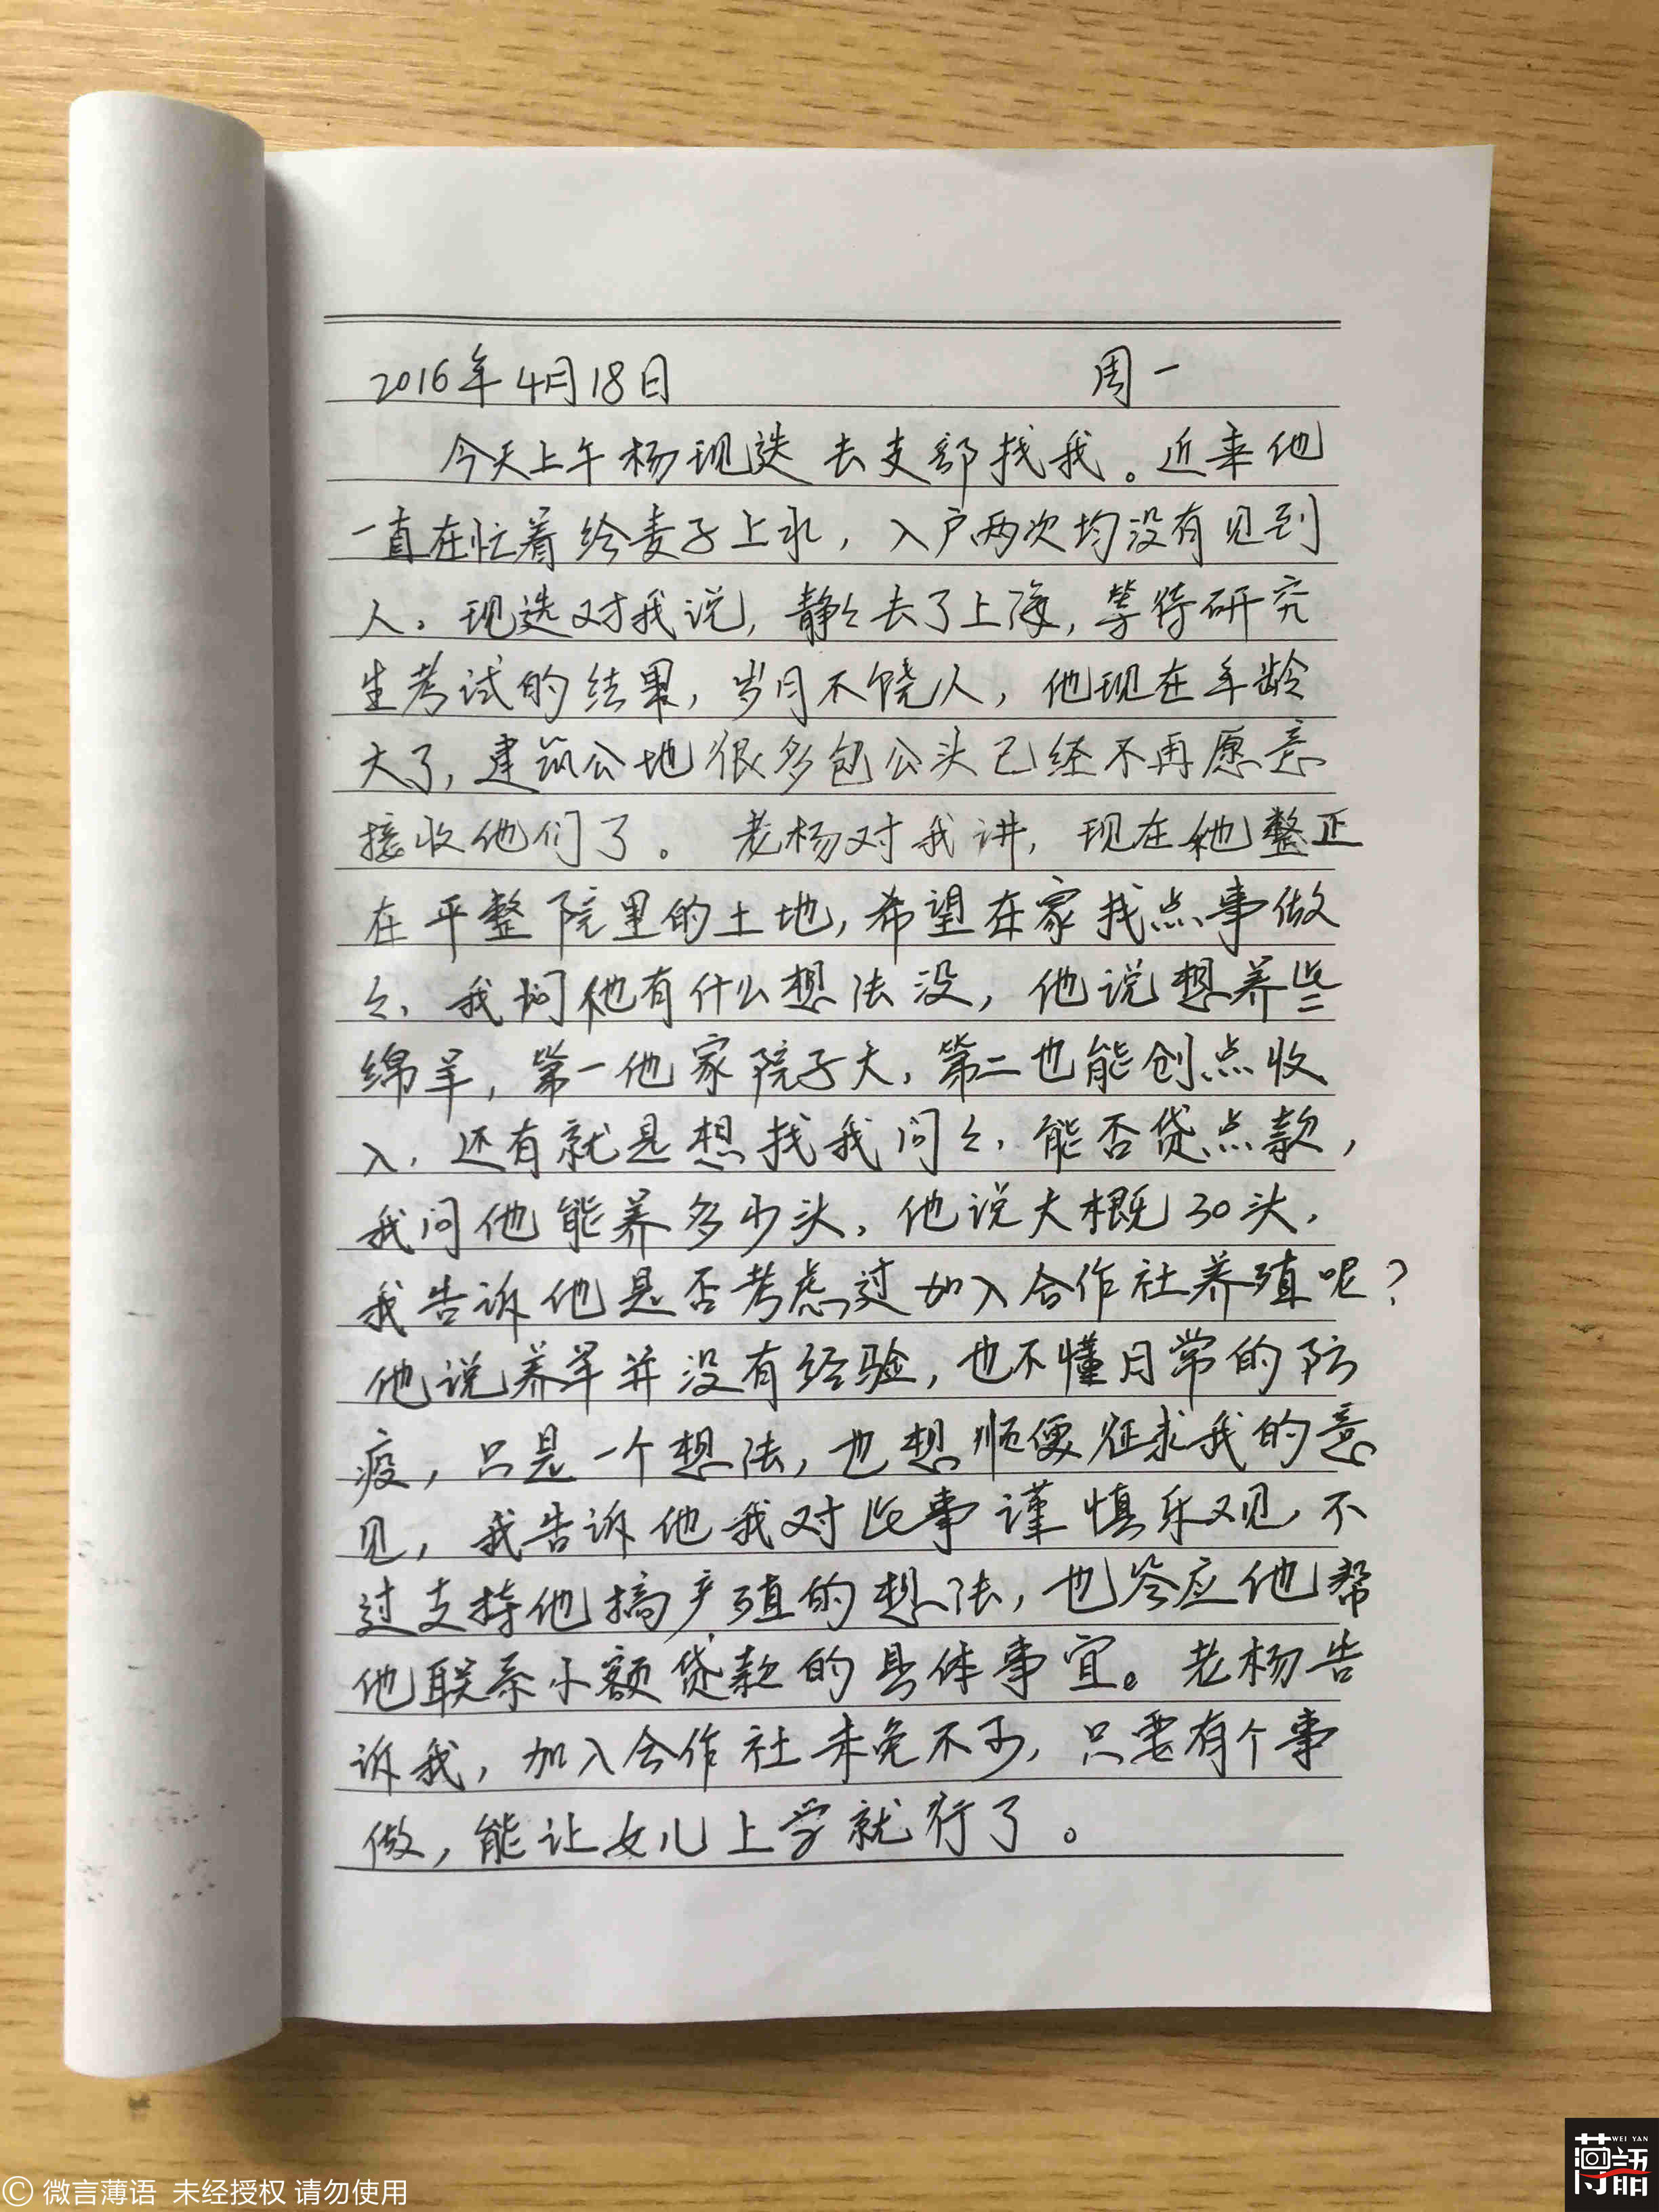 2016年4月18日 周一
今天上午杨现选去支部找我。近来他
一直在忙着给麦子上水，入户两次均没有见到
人。现选对我说，静々去了上海，等待研究
生考试的结果，岁月不饶人，他现在年龄
大了，建筑公地很多包公头已经不再愿意
接收他们了。老杨对我讲，现在他整正
在平整院里的土地，希望在家找点事做
々，我问他有什么想法没，他说想养些
绵羊，第一他家院子大，第二也能创点收
入，还有就是想找我问々，能否贷点款，
我问他能养多少头，他说大概30头，
我告诉他是否考虑过加入合作社养殖呢？
他说养羊并没有经验，也不懂日常的防
疫，只是一个想法，也想顺便征求我的意
见，我告诉他我对此事谨慎乐观，不
过支持他搞产殖的想法，也答应他帮
他联系小额贷款的具体事宜。老杨告
诉我，加入合作社未免不可，只要有个事
做，能让女儿上学就行了。
© 微言薄语 未经授权 请勿使用
WEI YAN
薄語